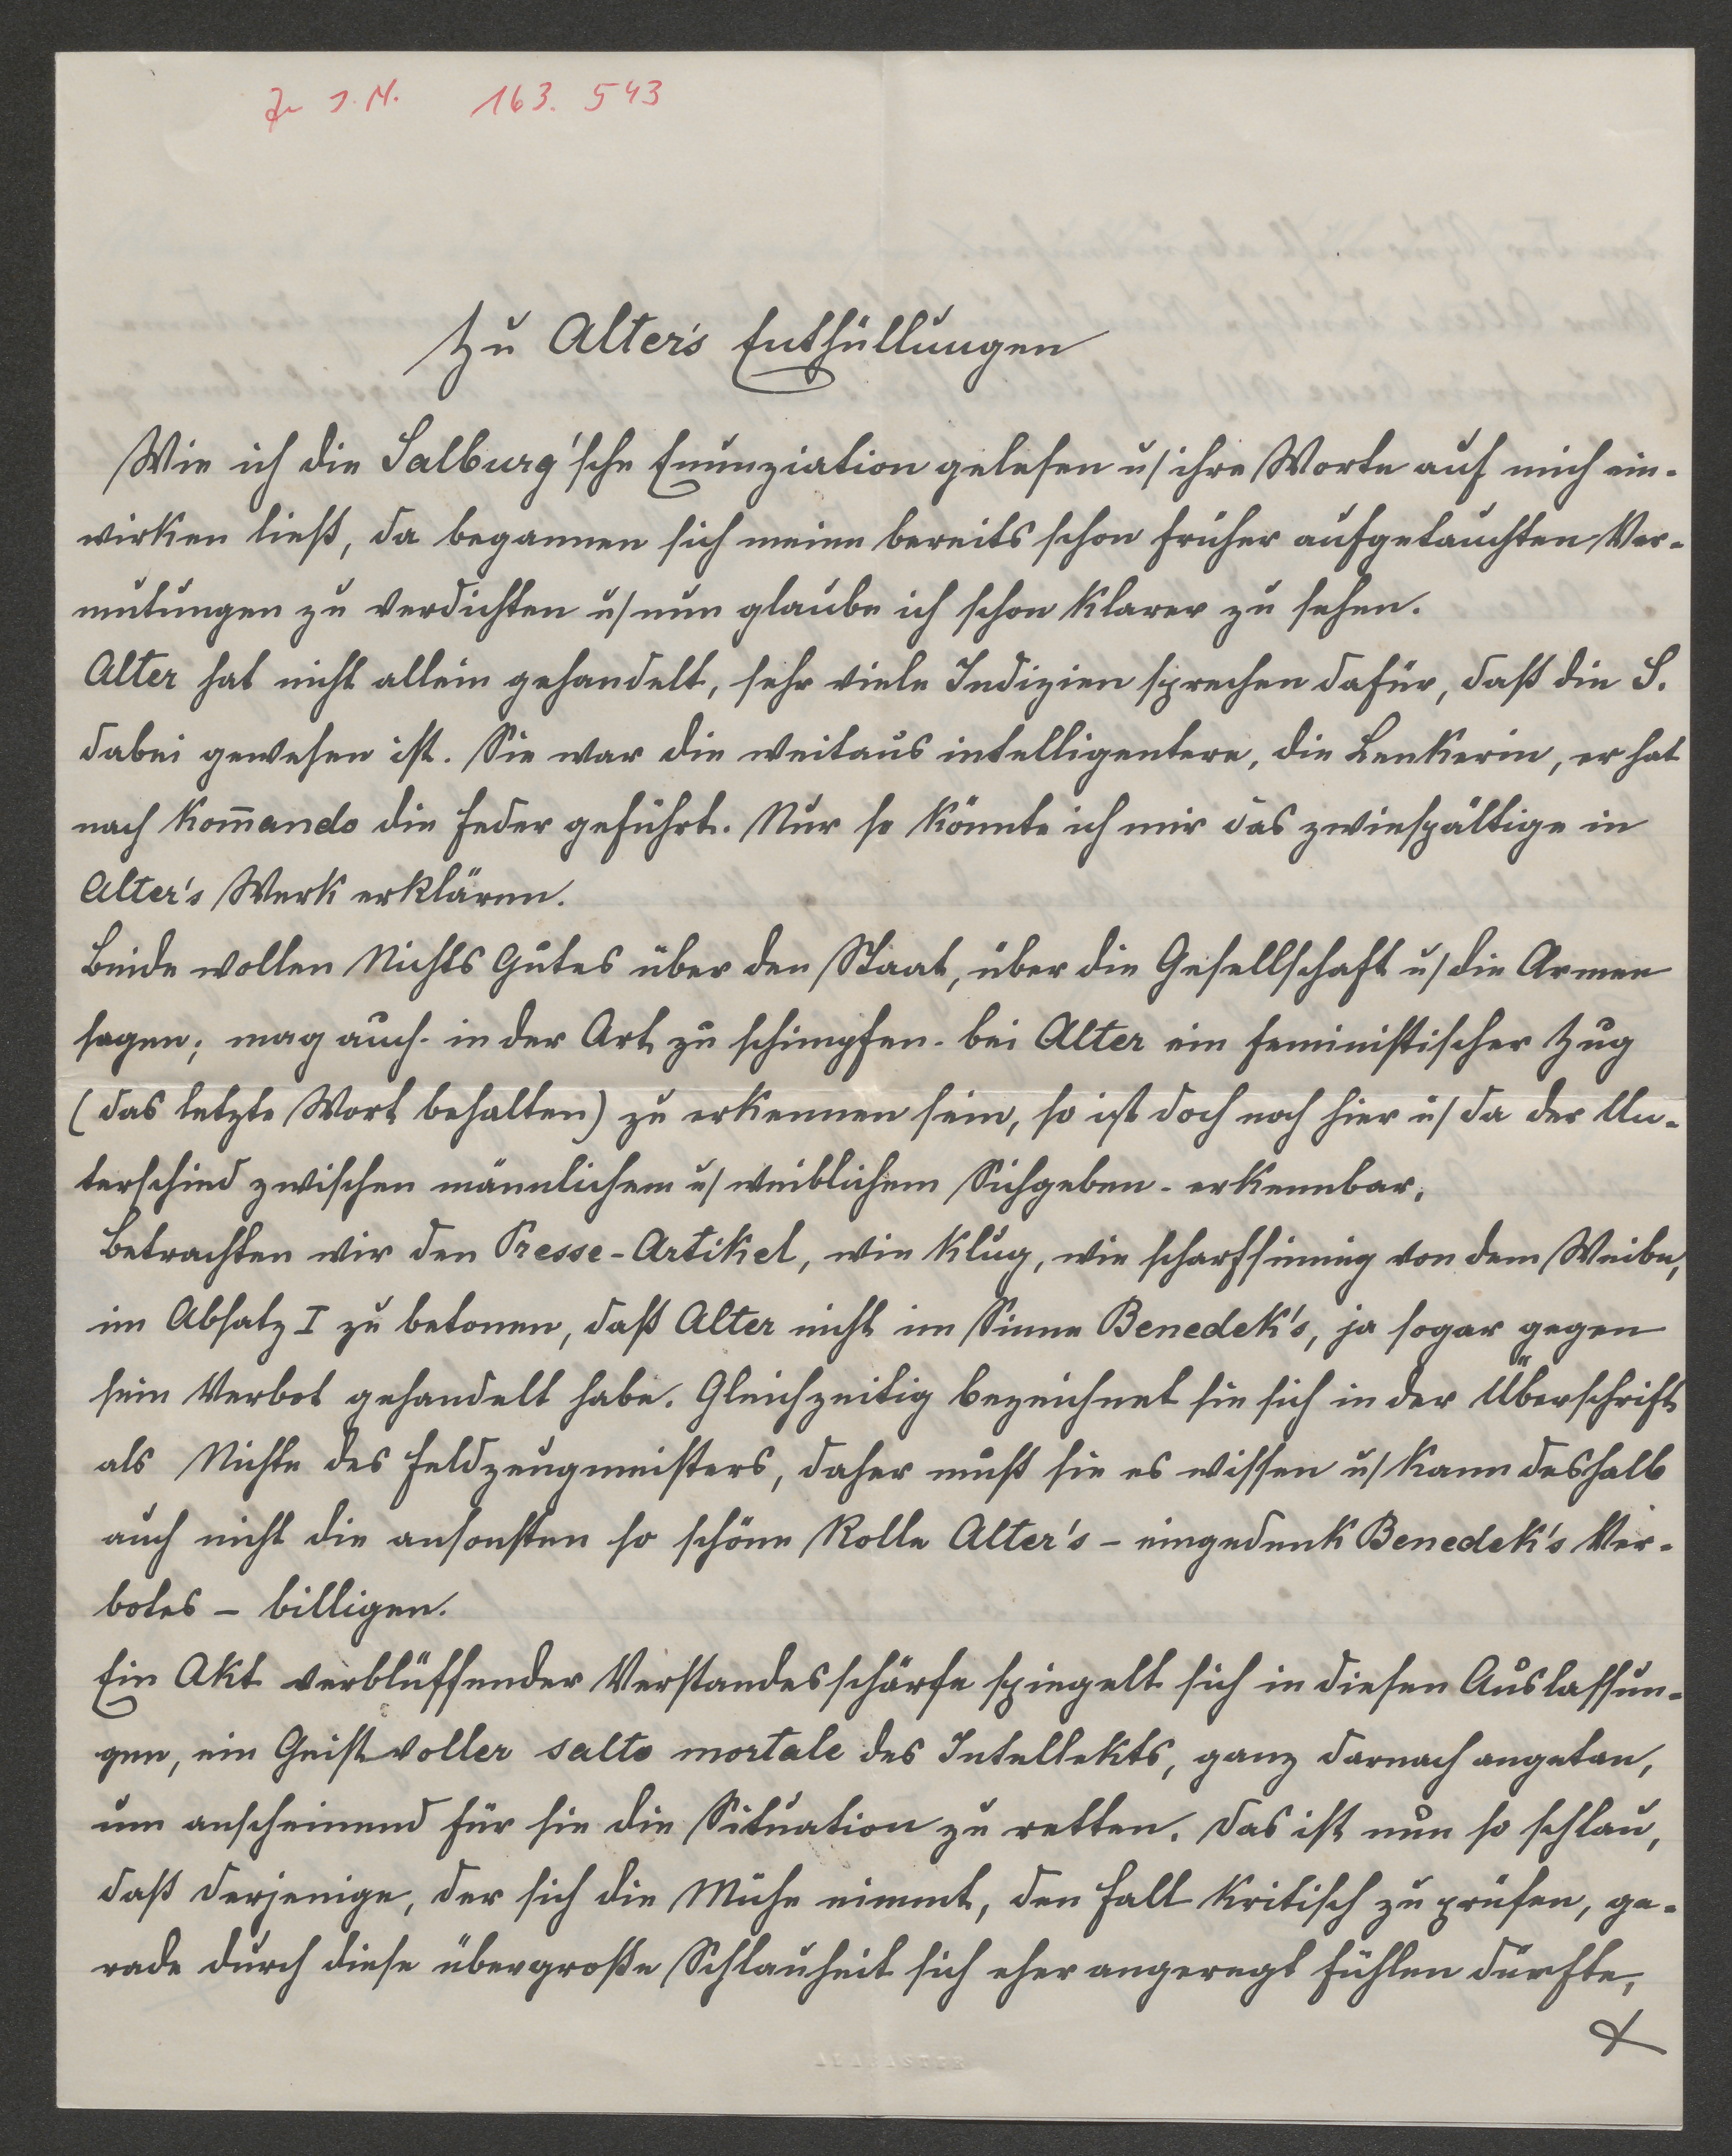 Zu I.N. 163.543
Zu Alter's Enthüllungen
Wie ich die Salburg'sche Enunziation gelesen u/ ihre Worte auf mich ein-
wirken ließ, da begannen sich meine bereits schon früher aufgetauchten Ver-
mutungen zu verdichten u/ nun glaube ich schon klarer zu sehen.
Alter hat nicht allein gehandelt, sehr viele Indizien sprechen dafür, daß die S.
dabei gewesen ist. Sie war die weitaus intelligentere, die Lenkerin, er hat
nach Kom̅ando die Feder geführt. Nur so könnte ich mir das zwiespältige in
Alter's Werk erklären.
Beide wollen Nichts Gutes über den Staat, über die Gesellschaft u/ die Armee
sagen; mag auch - in der Art zu schimpfen - bei Alter ein feministischer Zug
(das letzte Wort behalten) zu erkennen sein, so ist doch noch hier u/ da der Un-
terschied zwischen männlichem u/ weiblichem Sichgeben - erkennbar.
Betrachten wir den Presse-Artikel, wie klug, wie scharfsinnig von dem Weibe,
im Absatz I zu betonen, daß Alter nicht im Sinne Benedek's, ja sogar gegen
sein Verbot gehandelt habe. Gleichzeitig bezeichnet sie sich in der Überschrift
als Nichte des Feldzeugmeisters, daher muß sie es wissen u/ kann deshalb
auch nicht die ansonsten so schöne Rolle Alter's - eingedenk Benedek's Ver-
botes - billigen.
Ein Akt verblüffender Verstandesschärfe spiegelt sich in diesen Auslassun-
gen, ein Geistvoller salto mortale des Intellekts, ganz darnach angetan,
um anscheinend für sie die Situation zu retten. Das ist nun so schlau,
daß derjenige, der sich die Mühe nimmt, den Fall kritisch zu prüfen, ge-
rade durch diese übergroße Schlauheit sich eher angeregt fühlen dürfte,